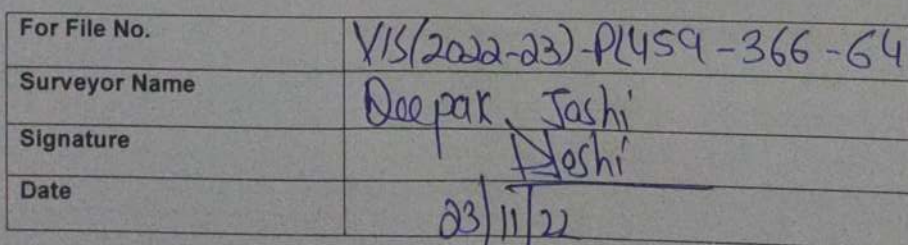 For File No. VIS(2022-23)-PL459-366-64
Surveyor Name Deepak Joshi
Signature DJoshi
Date 23/11/22